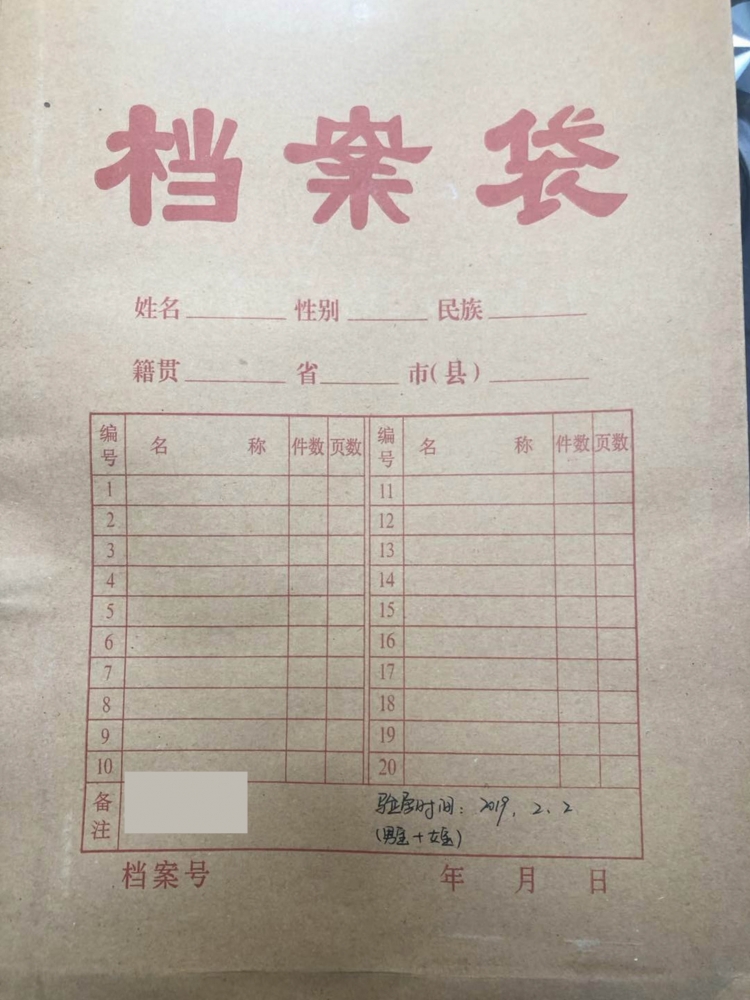 档案袋
姓名 性别 民族
籍贯 省 市(县)
编号 名 称 件数 页数 编号 名 称 件数 页数
1 11
2 12
3 13
4 14
5 15
6 16
7 17
8 18
9 19
10 20
备注 时间：2019. 2. 2
档案号 年 月 日